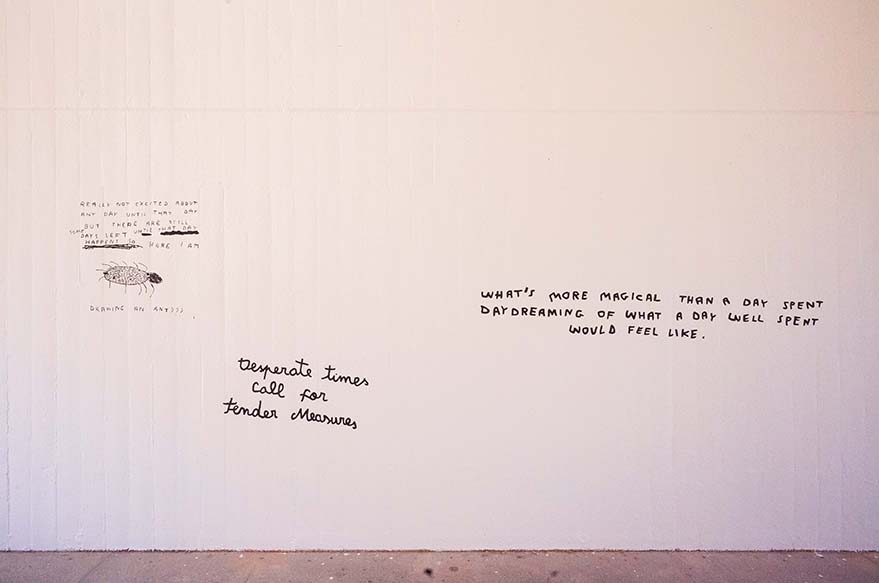 REALLY NOT EXCITED ABOUT
ANY DAY UNTIL THAT DAY
BUT THERE ARE STILL
SOME DAYS LEFT UNTIL THAT DAY
HAPPENS SO HERE I AM
DRAWING AN ANT???
Desperate times
call for
Tender Measures
WHAT'S MORE MAGICAL THAN A DAY SPENT
DAYDREAMING OF WHAT A DAY WELL SPENT
WOULD FEEL LIKE.